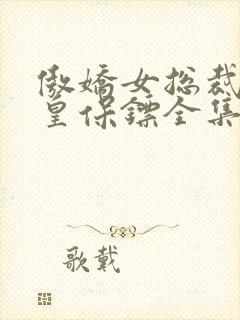 傲嬌女総裁
皇保鏢全集
歌戴